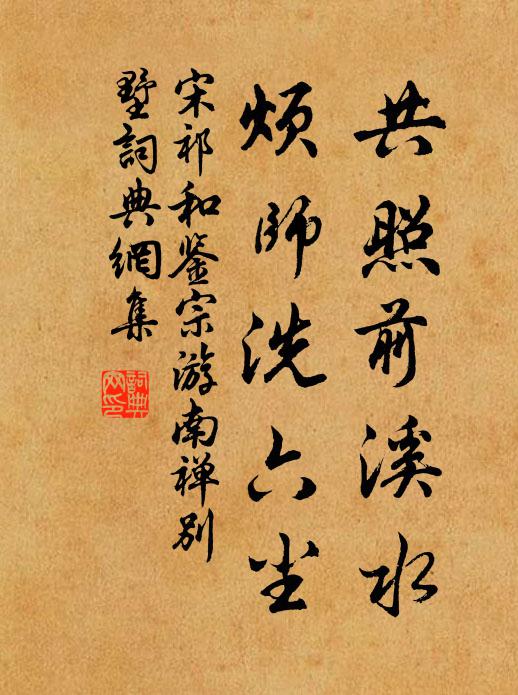 共照前溪水
烦师洗六尘
宋祁和鉴宗游南禅别
墅詞典網集
詞典网印